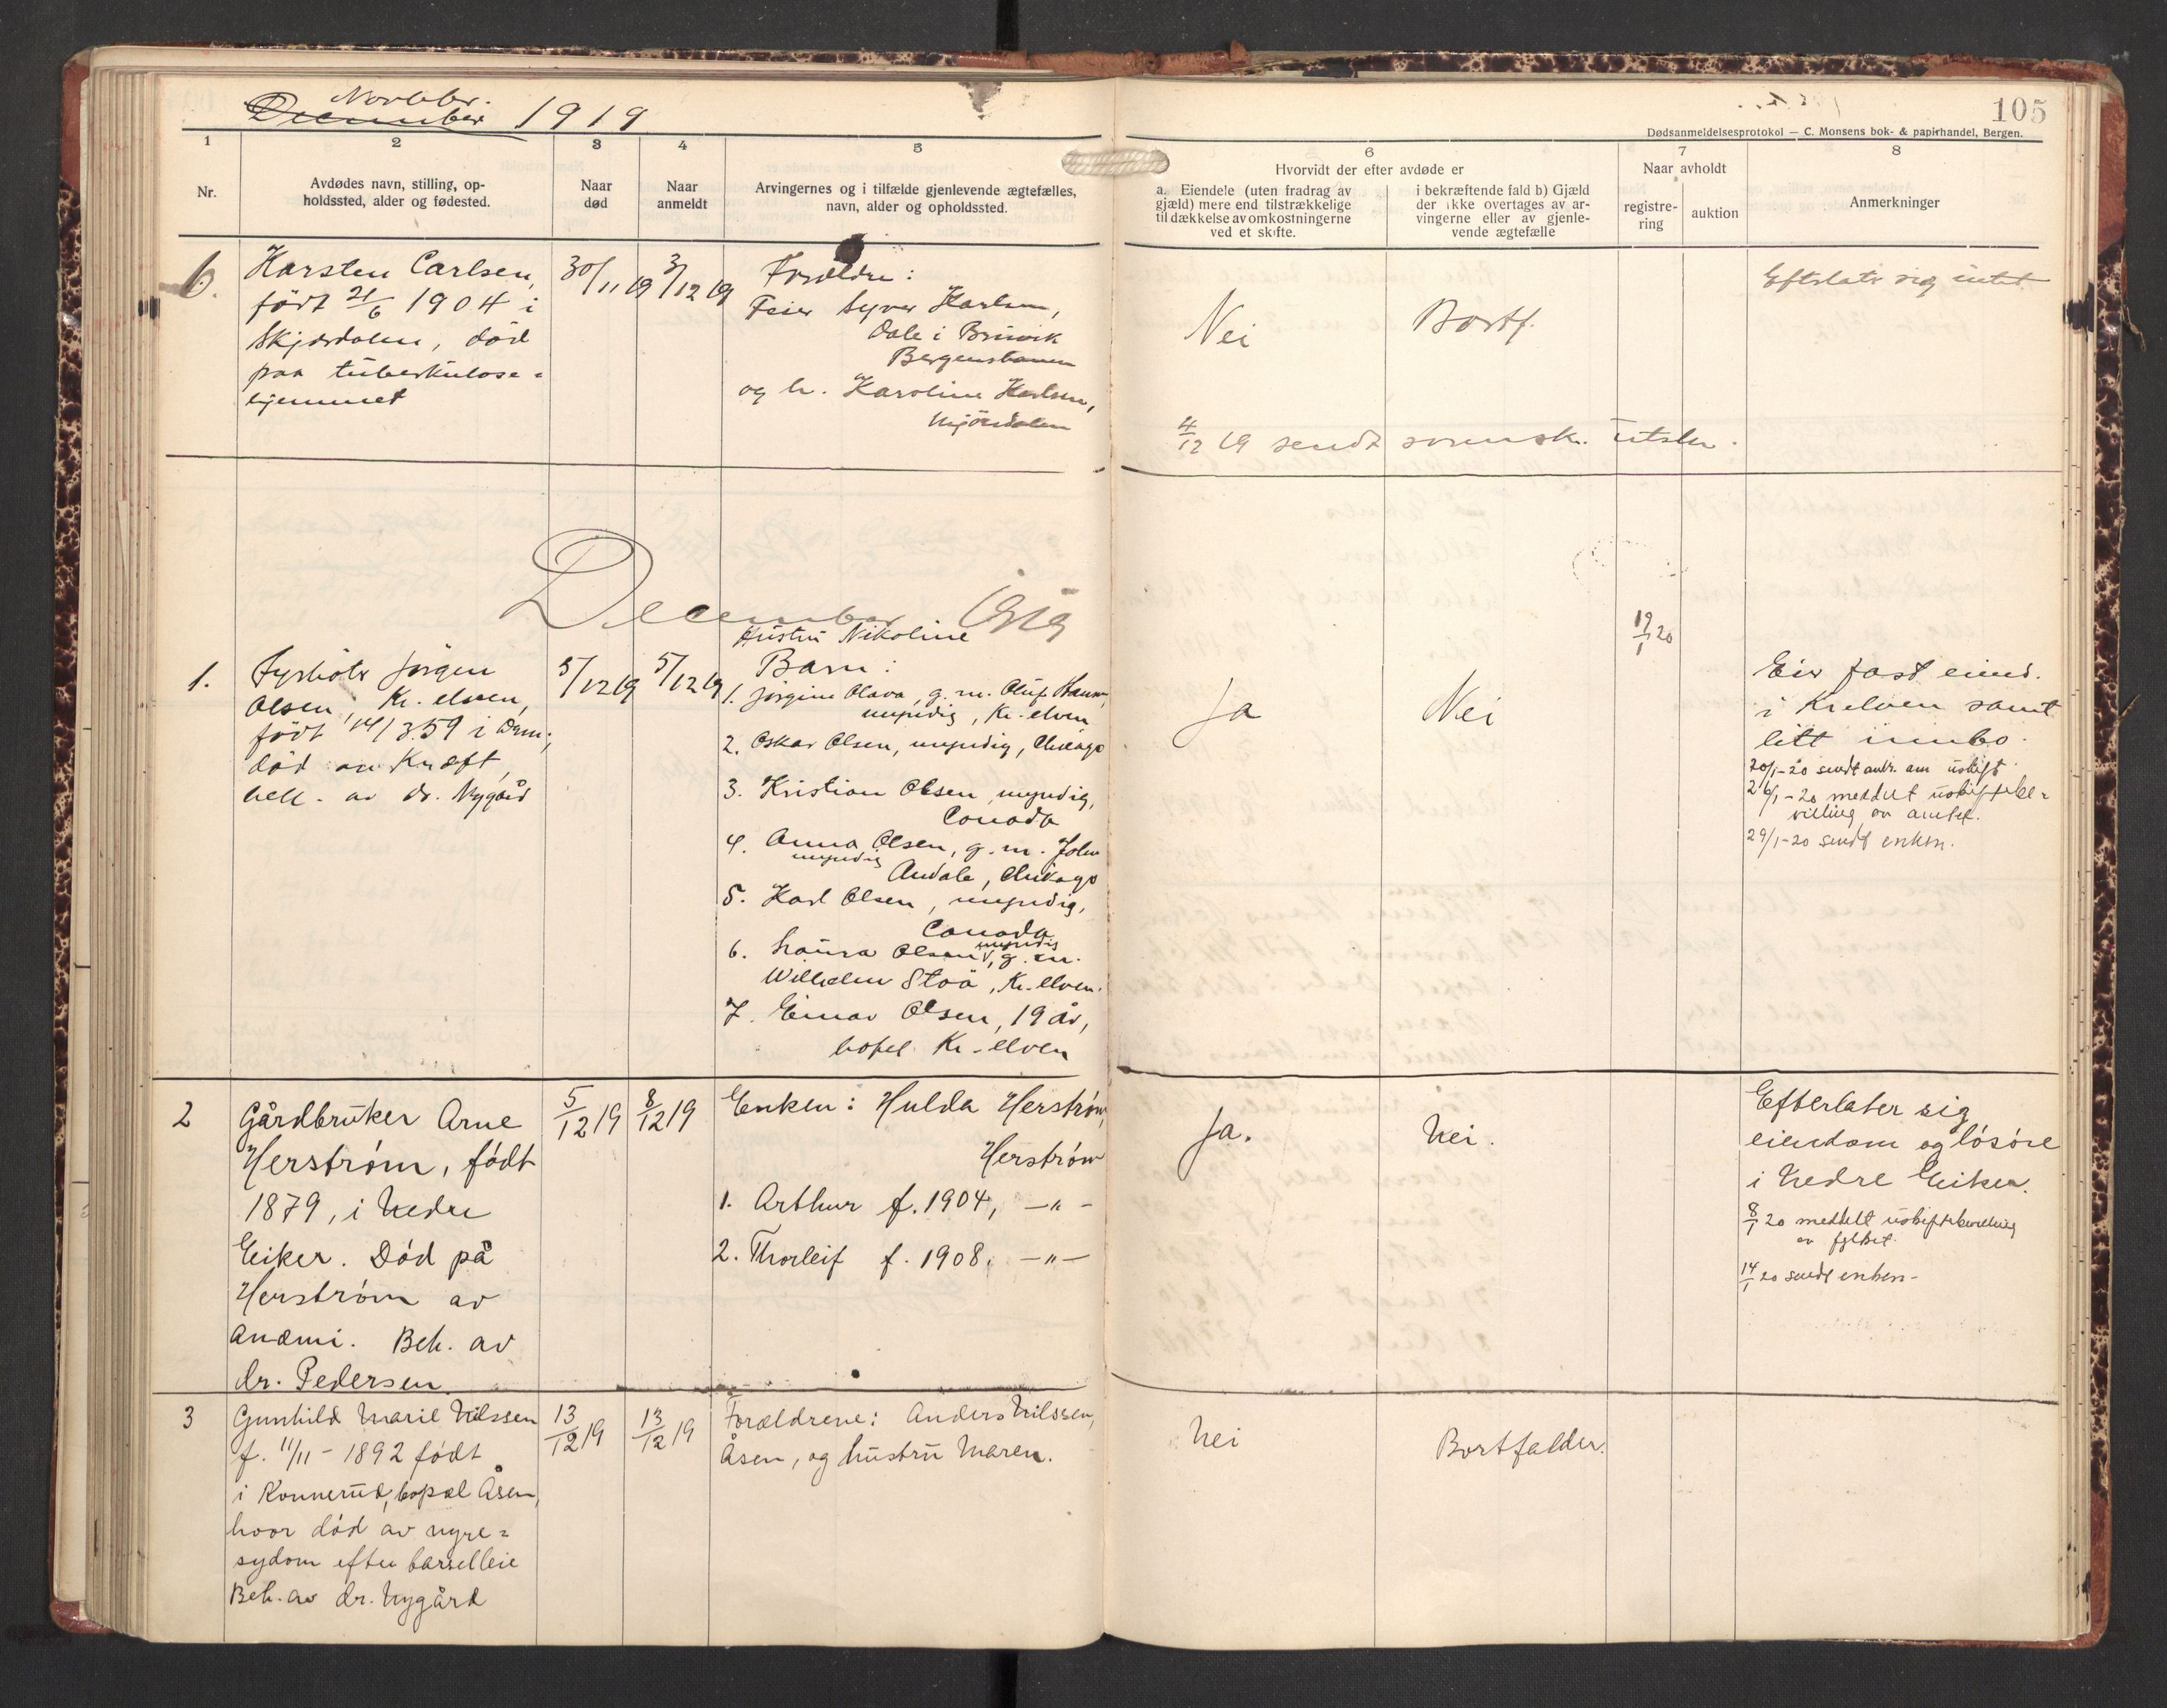 Novbr.
December 1919
105
Dødsanmeldelsesprotokol — C. Monsens bok- & papirhandel, Bergen.
1
Nr.
2
Avdødes navn, stilling, op-
holdssted, alder og fødested.
3
Naar
død
4
Naar
anmeldt
5
Arvingernes og i tilfælde gjenlevende ægtefælles,
navn, alder og opholdssted.
6
Hvorvidt der efter avdøde er
a. Eiendele (uten fradrag av
gjæld) mere end tilstrækkelige
til dækkelse av omkostningerne
ved et skifte.
i bekræftende fald b) Gjæld
der ikke overtages av ar-
vingerne eller av gjenle-
vende ægtefælle
7
Naar avholdt
registre-
ring
auktion
8
Anmerkninger
6.
Karsten Carlsen,
født 21/6 1904 i
Skjærdalen, død
paa tuberkulose-
hjemmet
30/11 19
3/12 19
Forældre:
Karlsen,
Dale i Bruvik
Bergensbanen
og h. Karoline Karlsen,
Mjøndalen
Nei
Bortf.
Efterlater sig intet
4/12 19 sendt svensk.
December 1919
1.
Fyrbøter Jørgen
Olsen, Kr. elven,
født 14/3.59 i Drm;
død av Kræft,
beh. av dr. Nygård
5/12 19
5/12 19
Hustru Nikoline
Barn:
1. Jørgine Olava, g. m. Oluf Hansen,
myndig, Kr. elven
2. Oskar Olsen, myndig, Chicago
3. Kristian Olsen myndig,
Canada
4. Anna Olsen, g. m. John
myndig
Andale, Chikago
5. Karl Olsen, myndig,
Canada
6. Laura Olsen myndig, g. m.
Wilhelm Stoa, Kr. elven.
7. Einar Olsen, 19 år,
bopel Kr-elven
Ja
Nei
19/1 20
Eier fast eiend.
i Kr.elven samt
litt innbo.
20/1-20 sendt andr. om uskift.
26/1-20 meddelt uskiftebe-
villing av amtet.
29/1-20 sendt enken.
2
Gårdbruker Arne
Herstrøm, født
1879, i Nedre
Eiker. Død på
Herstrøm av
Anæmi. Beh. av
dr. Pedersen
5/12 19
8/12 19
Enken: Hulda Herstrøm,
Herstrøm
1. Arthur f. 1904, —„—
2. Thorleif f. 1908. —„—
Ja.
Nei.
Efterlater sig
eiendom og løsøre
i Nedre Eiker.
8/1 20 meddelt uskiftebevilling
av fylket.
14/1 20 sendt enken-
3
Gunhild Marie Nilssen
f. 11/11 - 1892 født
i Konnerud, bopæl Åsen,
hvor død av nyre-
sydom efter barselleie
Beh. av dr. Nygård
13/12 19
13/12 19
Forældrene: Anders Nilssen,
Åsen, og hustru Maren.
Nei
Bortfalder.